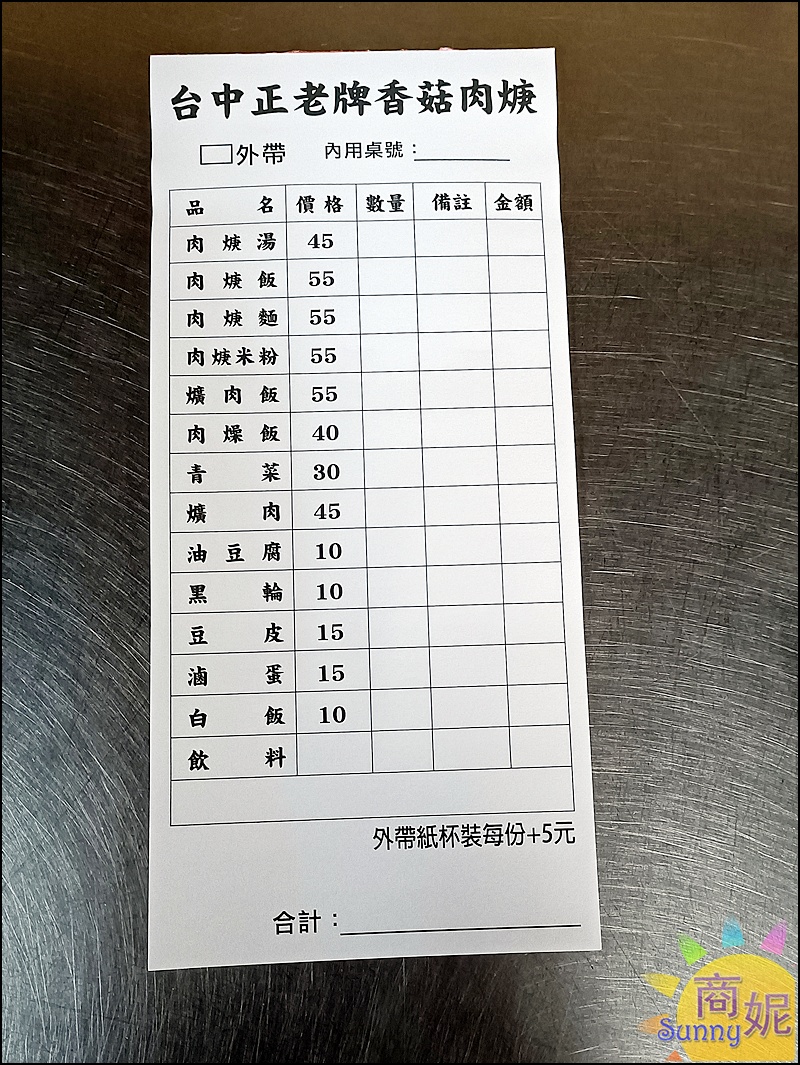 台中正老牌香菇肉焿
外帶 內用桌號：
品名 價格 數量 備註 金額
肉焿湯 45
肉焿飯 55
肉焿麵 55
肉焿米粉 55
爌肉飯 55
肉燥飯 40
青菜 30
爌肉 45
油豆腐 10
黑輪 10
豆皮 15
滷蛋 15
白飯 10
飲料
外帶紙杯裝每份+5元
合計：
商妮
Sunny